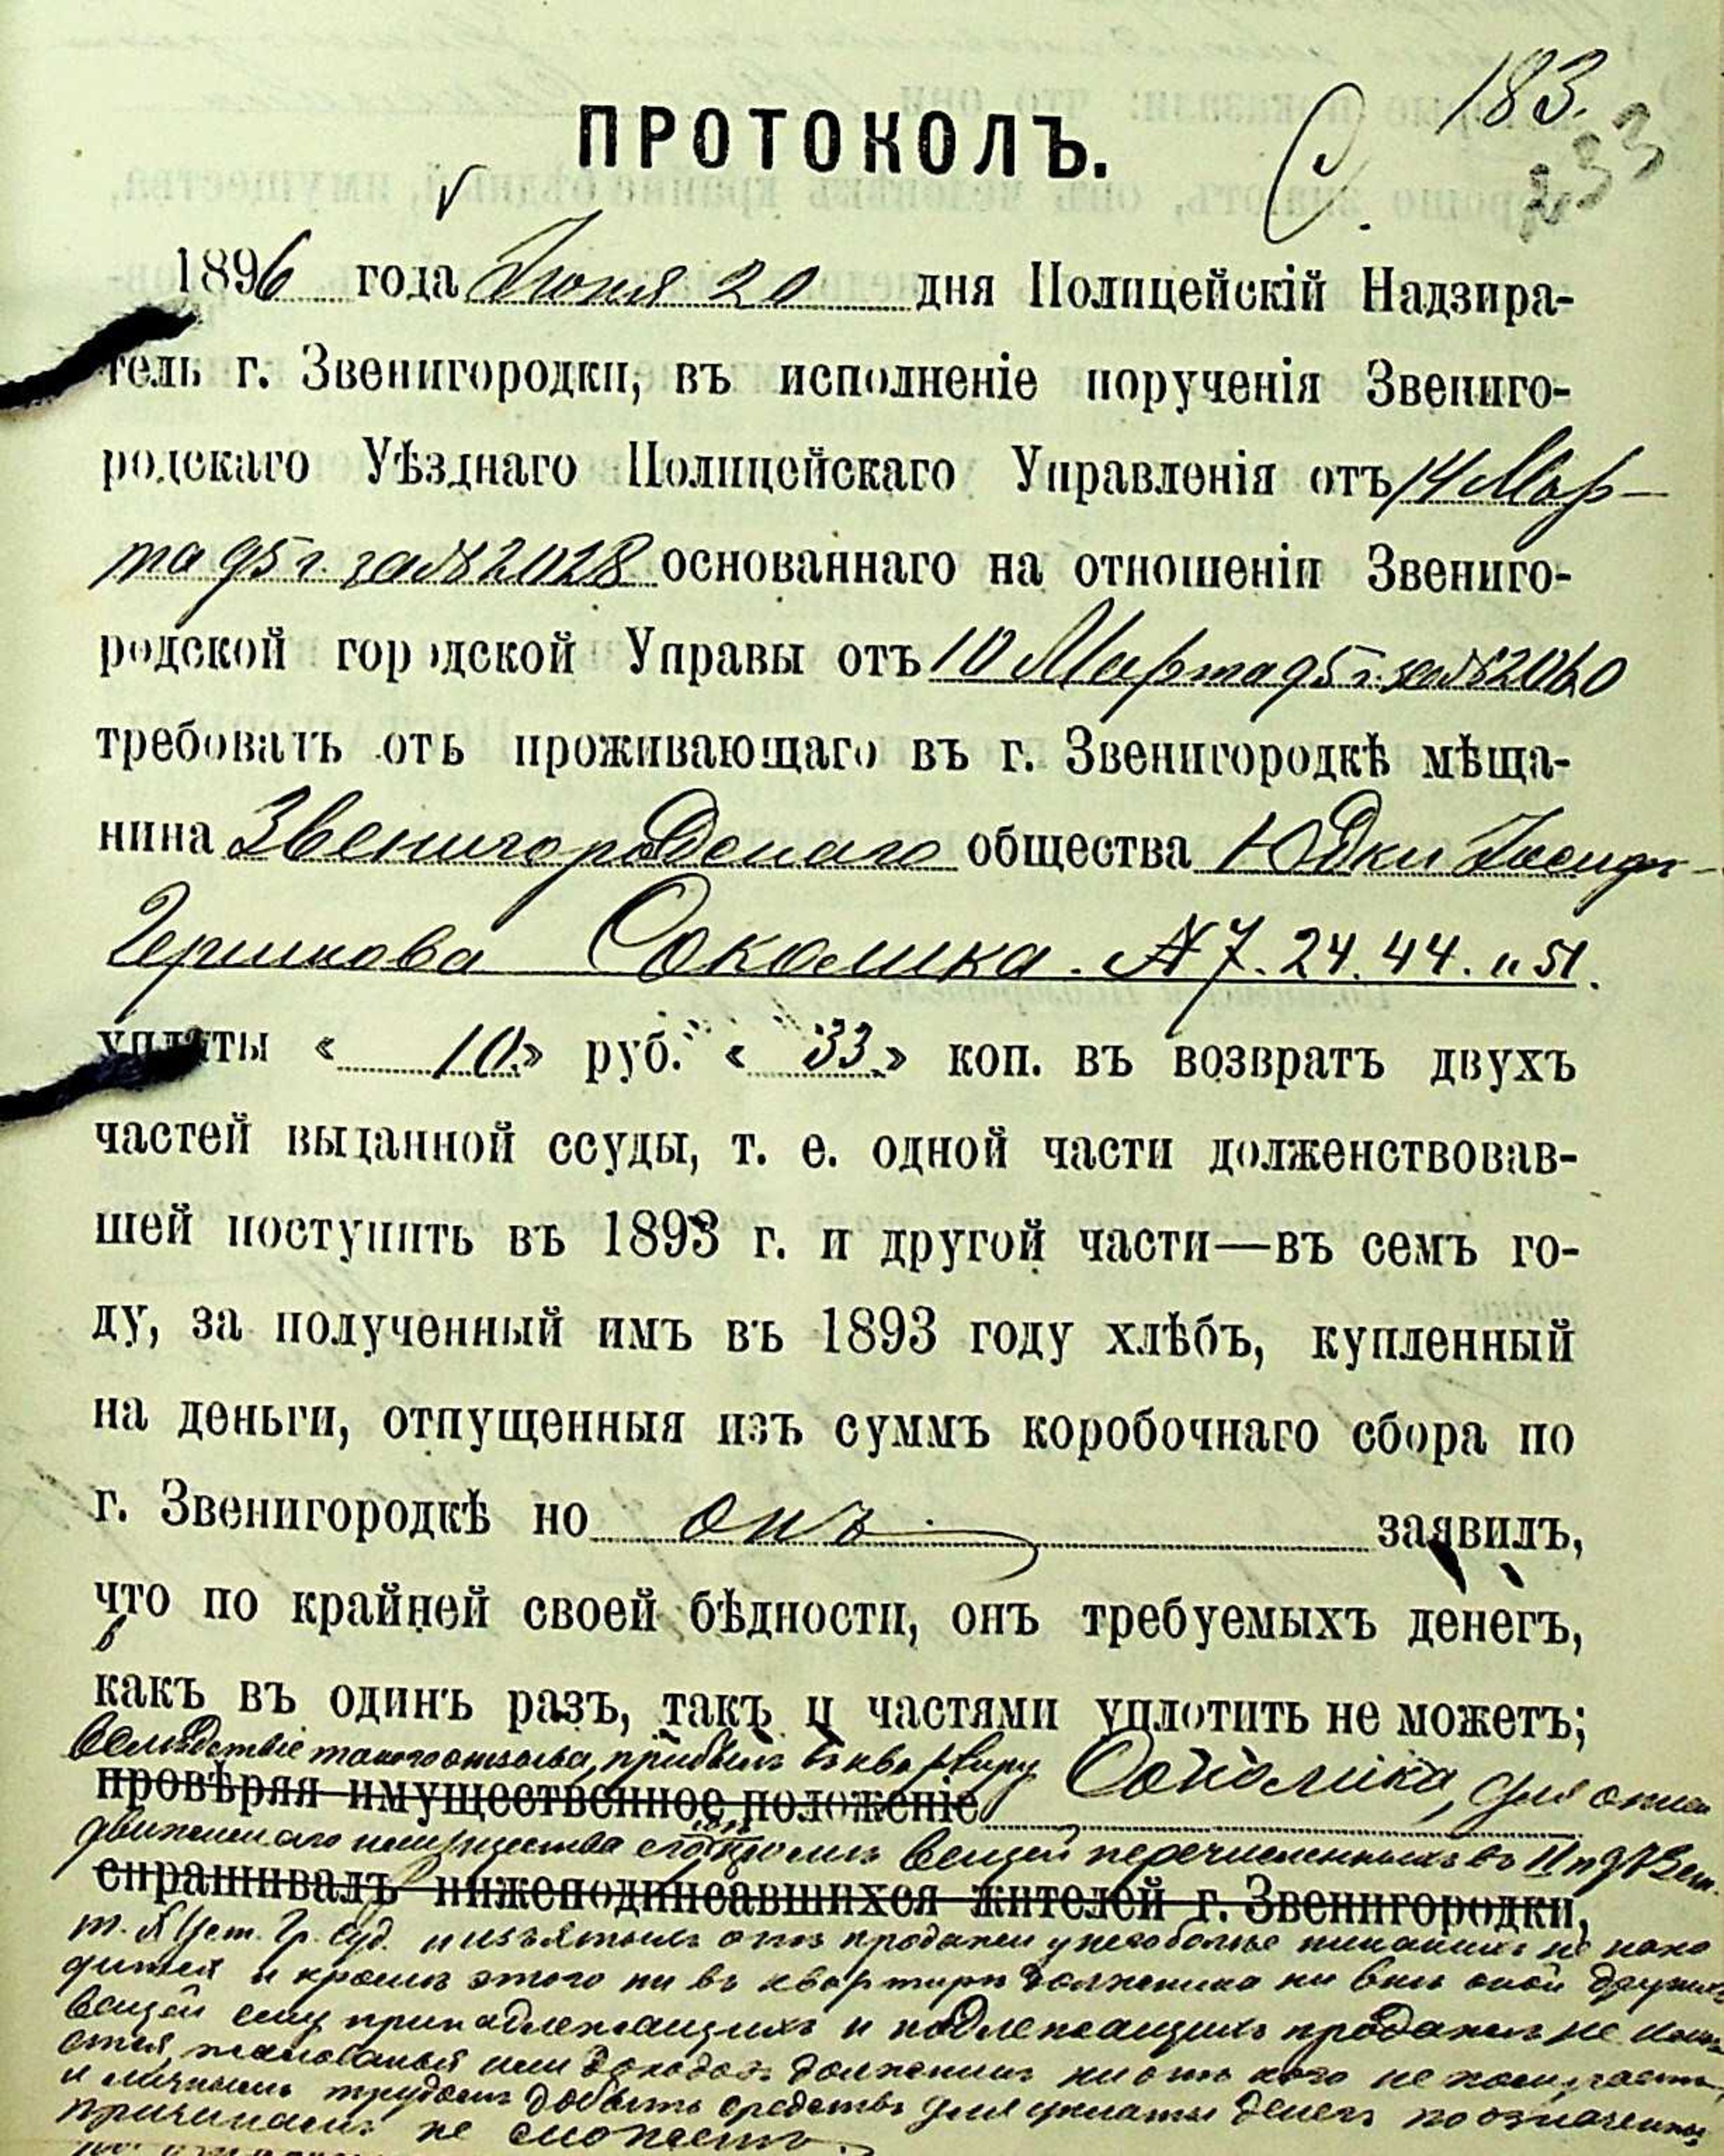 183.
233
ПРОТОКОЛЪ.
1896 года Іюня 20 дня Полицейскій Надзира-
тель г. Звенигородки, въ исполненіе порученія Звениго-
родскаго Уѣзднаго Полицейскаго Управленія отъ 14 Мар-
та 95 г. за № 2028 основаннаго на отношеніи Звениго-
родской городской Управы отъ 10 Марта 95 г. за №
требовать отъ проживающаго въ г. Звенигородкѣ мѣща-
нина Звенигородскаго общества Юдки Іосиф-
Гершкова Соколика. № 7. 24. 44. и 51.
уплаты « 10. » руб. « 33. » коп. въ возвратъ двухъ
частей выданной ссуды, т. е. одной части долженствовав-
шей поступить въ 1893 г. и другой части—въ семъ го-
ду, за полученный имъ въ 1893 году хлѣбъ, купленный
на деньги, отпущенныя изъ суммъ коробочнаго сбора по
г. Звенигородкѣ но онъ заявилъ,
что по крайней своей бѣдности, онъ требуемыхъ денегъ,
какъ въ одинъ разъ, такъ и частями уплотить не можетъ;
Вслѣдствіе такого отзыва, прибылъ въ квартиру Соколика, для описи
провѣряя имущественное положеніе
движимаго имущества его кромѣ вещей перечисленныхъ въ
спрашивалъ нижеподписавшихся жителей г. Звенигородки,
Уст. Гр. Суд. и изъятыхъ отъ продажи у него болѣе никакихъ не нахо
дится и кромѣ этого ни въ квартирѣ должника ни внѣ оной другихъ
вещей ему принадлежащихъ и подлежащихъ продажѣ не имѣ
ется, жалованья или доходовъ должникъ ни отъ кого не получаетъ,
и личнымъ трудомъ добыть средствъ для уплаты денегъ по означеннымъ
причинамъ не сможетъ.